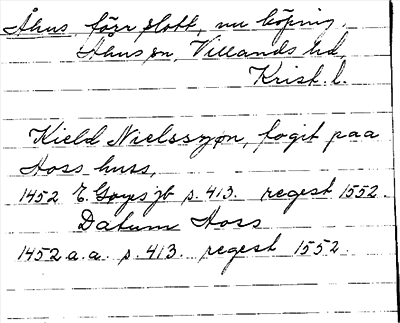 Åhus, förr slott, nu köping,
Åhus sn, Villands hd,
Krist. l.
Kield Nielssøn, fogit paa
Aoss huss,
1452 E. Gøyes jb s. 413. regest 1552.
Datum Aoss
1452 a.a. s. 413. regest 1552.